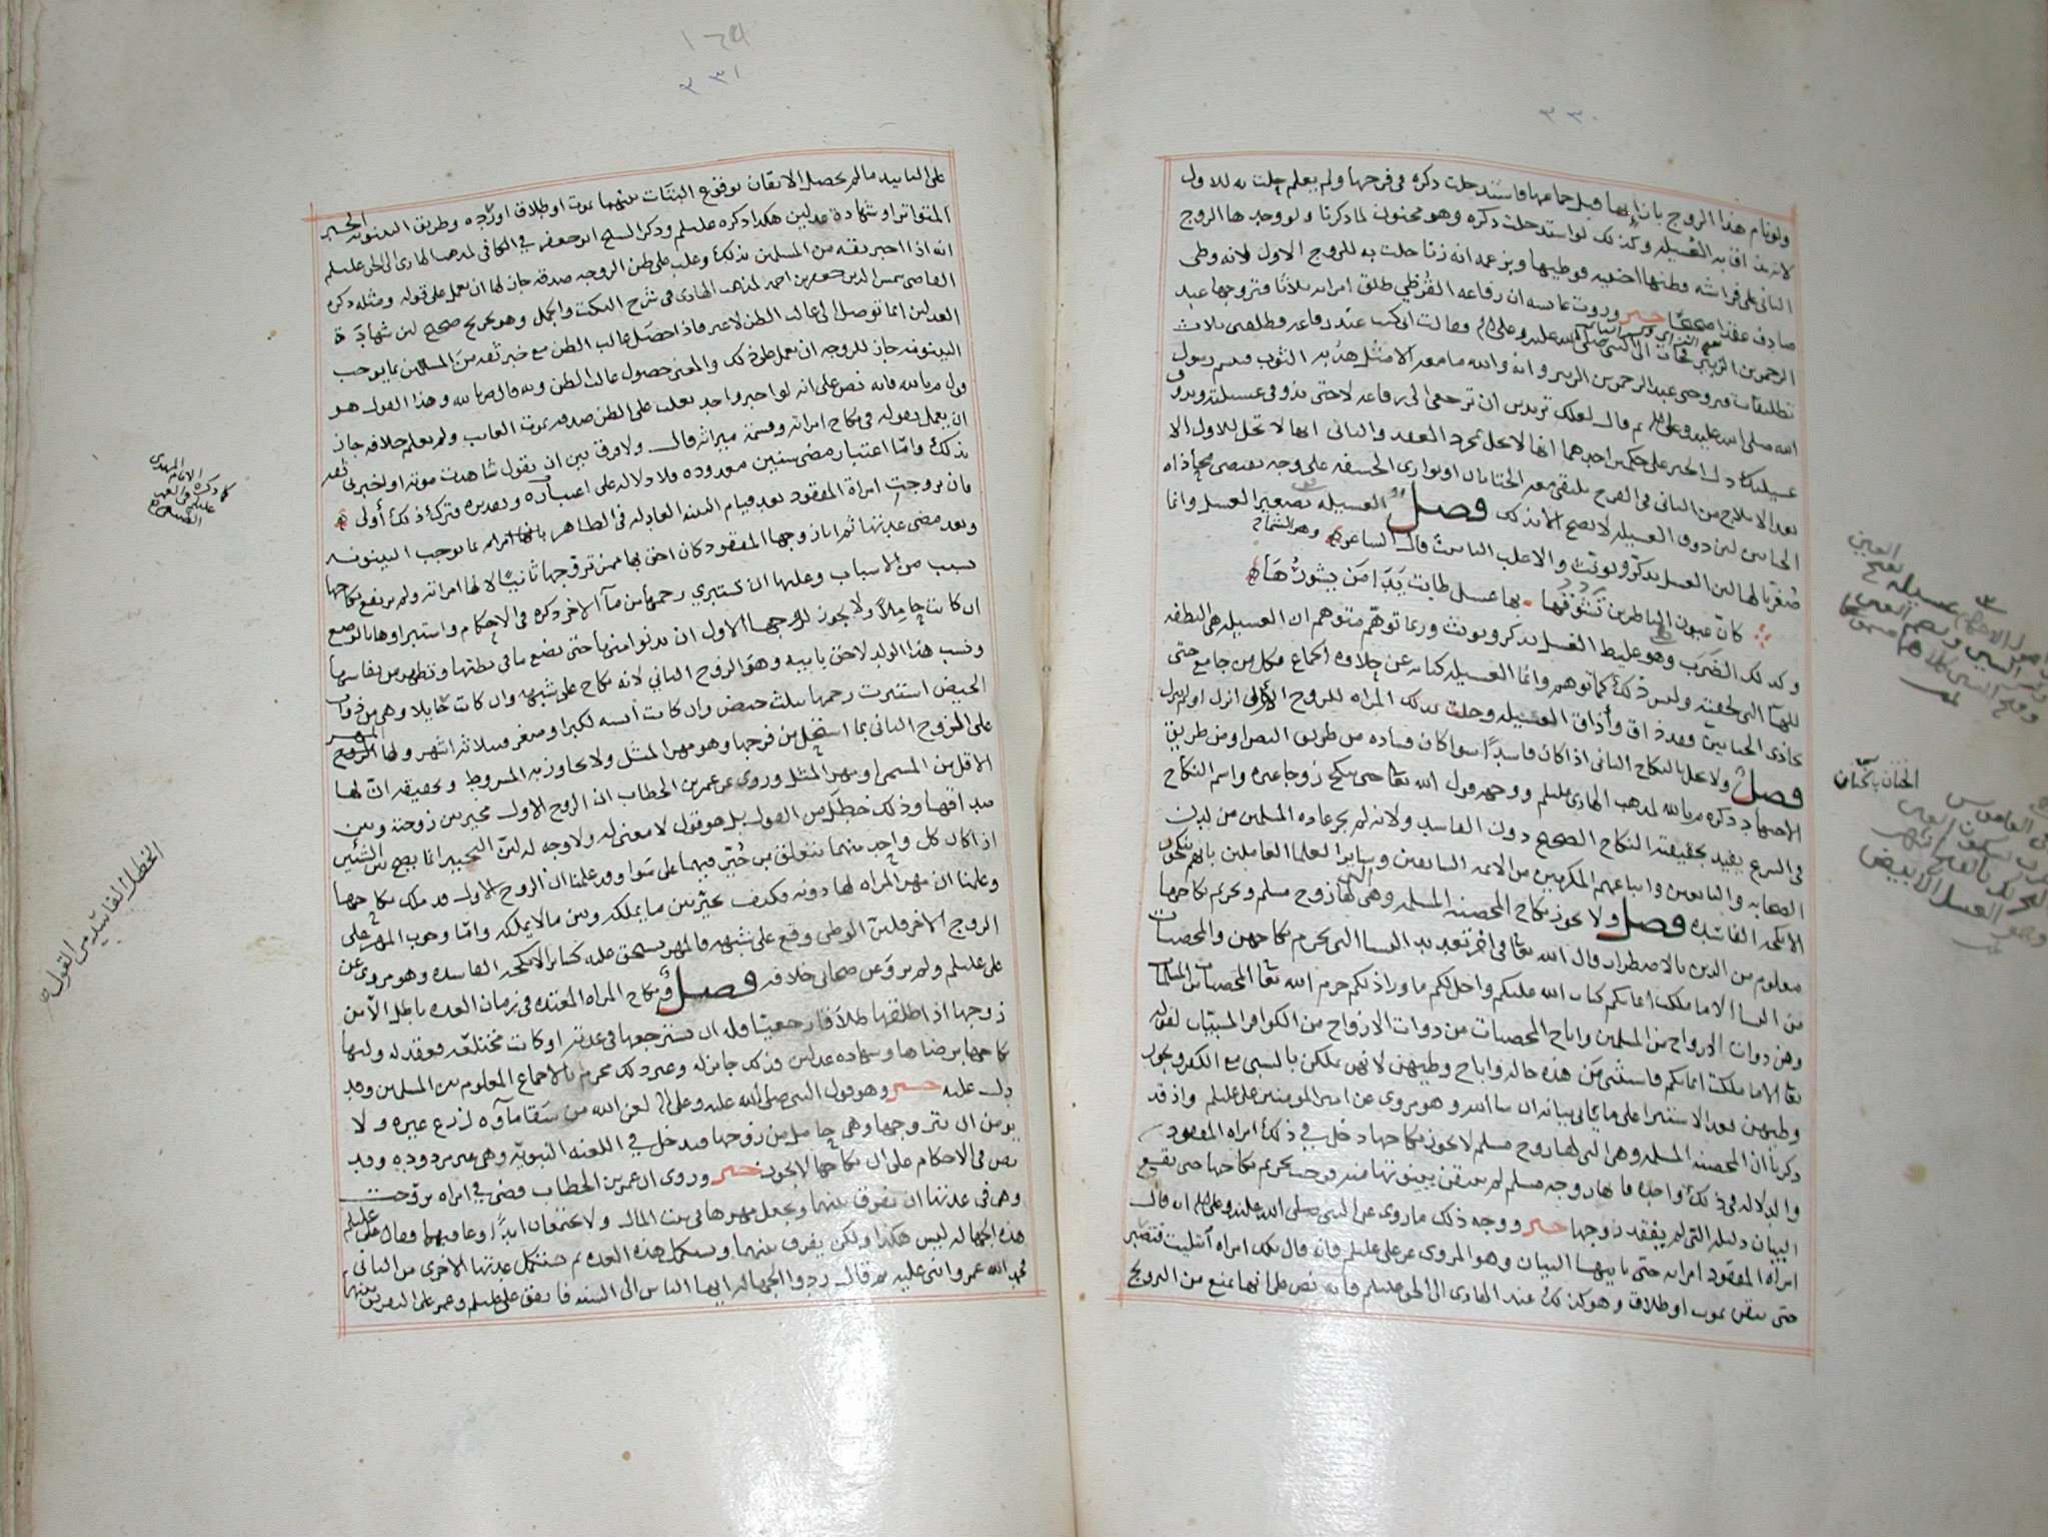 ٣٣٠
ولو نام هذا الزوج بازائها قبل جماعها فاستدخلت ذكره في فرجها ولم يعلم حلت به للاول
لانه قد اق به العسيله وكذلك لو استدخلت ذكره وهو مجنون لما ذكرنا ولو وجدها الزوج
الثاني على فراشه وظنها اجنبيه فوطيها ويزعمه انه زنا حلت به للزوج الاول لانه وطى
صادف عقدا صحيحا خبر وروت عايشه ان رفاعه القرظي طلق امراته ثلاثا فتزوجها عبد
الرحمن بن الزبير فجات الى النبي صلى الله عليه وعلى اله وقالت اني كنت عند رفاعه وطلقني ثلاث
تطليقات فتزوجني عبد الرحمن بن الزبير وانه والله ما معه الا مثل هدبه الثوب فتبسم رسول
الله صلى الله عليه وعلى اله ثم قال لعلك تريدين ان ترجعي الى رفاعه لا حتى تذوقي عسيلته ويذوق
عسيلتك دل الخبر على حكمين احدهما انها لا تحل بمجرد العقد والثاني انها لا تحل للاول الا
بعد الايلاج من الثاني في الفرج يلتقي معه الختانان او توارى الحشفه على وجه يقتضي محاذاه
الختانين لان ذوق العسيله لا يصح الا بذلك فصل العسيله تصغير العسل وانما
صغر بالها لان العسل يذكر ويونث والاغلب التانيث قال الشاعر وهو الشماخ
كان عيون الناظرين تشوقها بها عسل طابت يدا من يشورها
وكذلك الضرب وهو غليظ العسل يذكر ويونث وربما توهم متوهم ان العسيله هي النطفه
للهآ التى لحقته وليس ذلك كما توهم وانما العسيله كنايه عن حلاوه الجماع فكل من جامع حتى
يحاذى الختانين فقد ذاق وأذاق العسيله وحلت بذلك المراه للزوج الأول انزل او لم ينزل
فصل ولا تحل بالنكاح الثاني اذا كان فاسدا سوا كان فساده من طريق النص او من طريق
الاجتهاد ذكره م بالله لمذهب الهادي عليلم ووجهه قول الله تعا حتى تنكح زوجا غيره واسم النكاح
في الشرع يفيد بحقيقته النكاح الصحيح دون الفاسد ولانه لم يجر عاده المسلمين من لدن
الصحابه والتابعين واتباعهم المكرمين من الائمه السابقين وساير العلما العاملين بانهم
الانكحه الفاسده فصل ولا يجوز نكاح المحصنه المسلمه وهي التي لها زوج مسلم وتحريم نكاحها
معلوم من الدين بالاضطرار قال الله تعا في اخر تعديد النسا التي يحرم نكاحهن والمحصنات
من النسا الا ما ملكت ايمانكم كتاب الله عليكم واحل لكم ما ورا ذلكم حرم الله تعا المحصنات المسلمات
وهن ذوات الازواج من المسلمين واباح المحصنات من ذوات الازواج من الكوافر المسبيات لقوله
تعا الا ما ملكت ايمانكم فاستثنى من هذه حاله واباح وطيهن لانهن يملكن بالسبي مع الكفر ويجوز
وطيهن بعد الاستبرا على ما ياتي بيانه ان شا الله وهو مروي عن امير المومنين على عليلم واذ قد
ذكرنا ان المحصنه المسلمه وهي التي لها زوج مسلم لا يجوز نكاحها دخل في ذلك امراه المفقود
والدلاله في ذلك واحده فانها زوجه مسلم لم يتيقن بينونتها منه فوجب تحريم نكاحها حتى يقع
البيان دليله التى لم يفقد زوجها خبر ووجه ذلك ما روى عن النبي صلى الله عليه وعلى اله انه قال
امراه المفقود امراته حتى ياتيها البيان وهو المروي عن على عليلم فانه قال تلك امراه أبتليت فتصبر
حتى يتيقن بموت او طلاق وهو كذلك عند الهادي الى الحق عليلم فانه نص على انها تمنع من التزويج
الختان بالختان
١٦٩
٣٣١
على التابيد ما لم يحصل الايقان بوقوع البتات بينهما بموت او طلاق او رده وطريق البينونه الخبر
المتواتر او شهادة عدلين هكذا ذكره عليلم وذكر الشيخ ابو جعفر في الكافي لمذهب الهادي الى الحق عليلم
انه اذا اخبر ثقه من المسلمين بذلك وغلب على ظن الزوجه صدقه جاز لها ان تعمل على قوله ومثله ذكره
القاضي شمس الدين جعفر بن احمد لمذهب الهادي في شرح النكت والجمل وهو تخريج صحيح لان شهادة
العدلين انما توصل الى غالب الظن لا غير فاذا حصل غالب الظن مع خبر ثقه من المسلمين بما يوجب
البينونه جاز للزوجه ان تعمل على ذلك والمعنى حصول غالب الظن وبه قال م بالله وهذا القول هو
قول م بالله فانه نص على انه لو اخبر واحد يغلب على الظن صدقه بموت الغايب ولم يعلم خلافه جاز
ان يعمل بقوله في نكاح امراته وقسمة ميراثه قال ولا فرق بين ان يقول شاهدت موته او اخبرني ثقه
بذلك وامّا اعتبار مضى سنين معدوده فلا دلاله على اعتباره وتقديره فترك ذلك أولى
فان تزوجت امراة المفقود بعد قيام البينه العادله في الظاهر بانها امراه بما يوجب البينونه
وبعد مضى عدتها ثم اتا زوجها المفقود كان احق بها ممن تزوجها ثانيًا لانها امراته ولم يرتفع نكاحها
بسبب من الاسباب وعليها ان تستبري رحمها من مآ الاخر ذكره في الاحكام واستبراوها بالوضع
ان كانت حاملاً ولا يجوز لزوجها الاول ان يدنوا منها حتى تضع ما في بطنها وتطهر من نفاسها
ونسب هذا الولد لاحق بابيه وهو الزوج الثاني لانه نكاح على شبهه وان كانت حايلا وهي من ذوات
الحيض استبرت رحمها بثلث حيض وان كانت آيسه لكبر او صغر فبثلاثه اشهر ولها المهر
على الزوج الثاني بما استحل من فرجها وهو مهر المثل ولا يجاوز به المشروط وتحقيقه انّ لها
الاقل من المسمى او مهر المثل وروى عن عمر بن الخطاب ان الزوج الاول مخير بين زوجته وبين
صداقها وذلك خطل من القول بل هو قول لا معنى له ولا وجه له لان التخيير انما يصح بين الشيئين
اذا كان كل واحد منهما يتعلق بمن خُيّر فيهما على سَوا وقد علمنا ان الزوج الاول قد ملك نكاحها
وعلمنا ان مهر المراه لها دونه فكيف يخيّر بين ما يملكه وبين ما لا يملكه وامّا وجوب المهر على
الزوج الاخر فلان الوطى وقع على شبهه فالمهر يستحق عليه كساير الانكحه الفاسده وهو مروي عن
على عليلم ولم يروَ عن صحابى خلافه فصل ونكاح المراه المعتده في زمان العده باطل الا من
زوجها اذا طلقها طلاقا رجعيًا فله ان يسترجعها في عدته او كانت مختلعه فعقد له وليها
نكاحها برضاها وشهاده عدلين فذلك جايز له وغير ذلك محرم بالاجماع المعلوم بين المسلمين وقد
دل عليه خبر وهو قول النبي صلى الله عليه وعلى اله لعن الله من سَقا مآوه لزرع غيره ولا
يومن ان يتزوجها وهي حامل من زوجها فيدخل في اللعنه النبويّه وهي غير مردوده وقد
نص في الاحكام على ان نكاحها لا يجوز خبر وروى ان عمر بن الخطاب قضى في امراه تزوجت
وهى في عدتها ان يفرق بينهما ويجعل مهرها في بيت المال ولا يجتمعان ابدًا وعاقبهما فقال على عليلم
هذه الجهاله ليس هكذا ولكن يفرق بينهما وتستكمل هذه العده ثم تستكمل عدتها الاخرى من الثاني
فحمد الله عمر واثنى عليه ثم قال ردوا الجهاله ايها الناس الى السنه فاتفق على عليلم وعمر على التفريق بينهما
الخطل الفاسد من القول